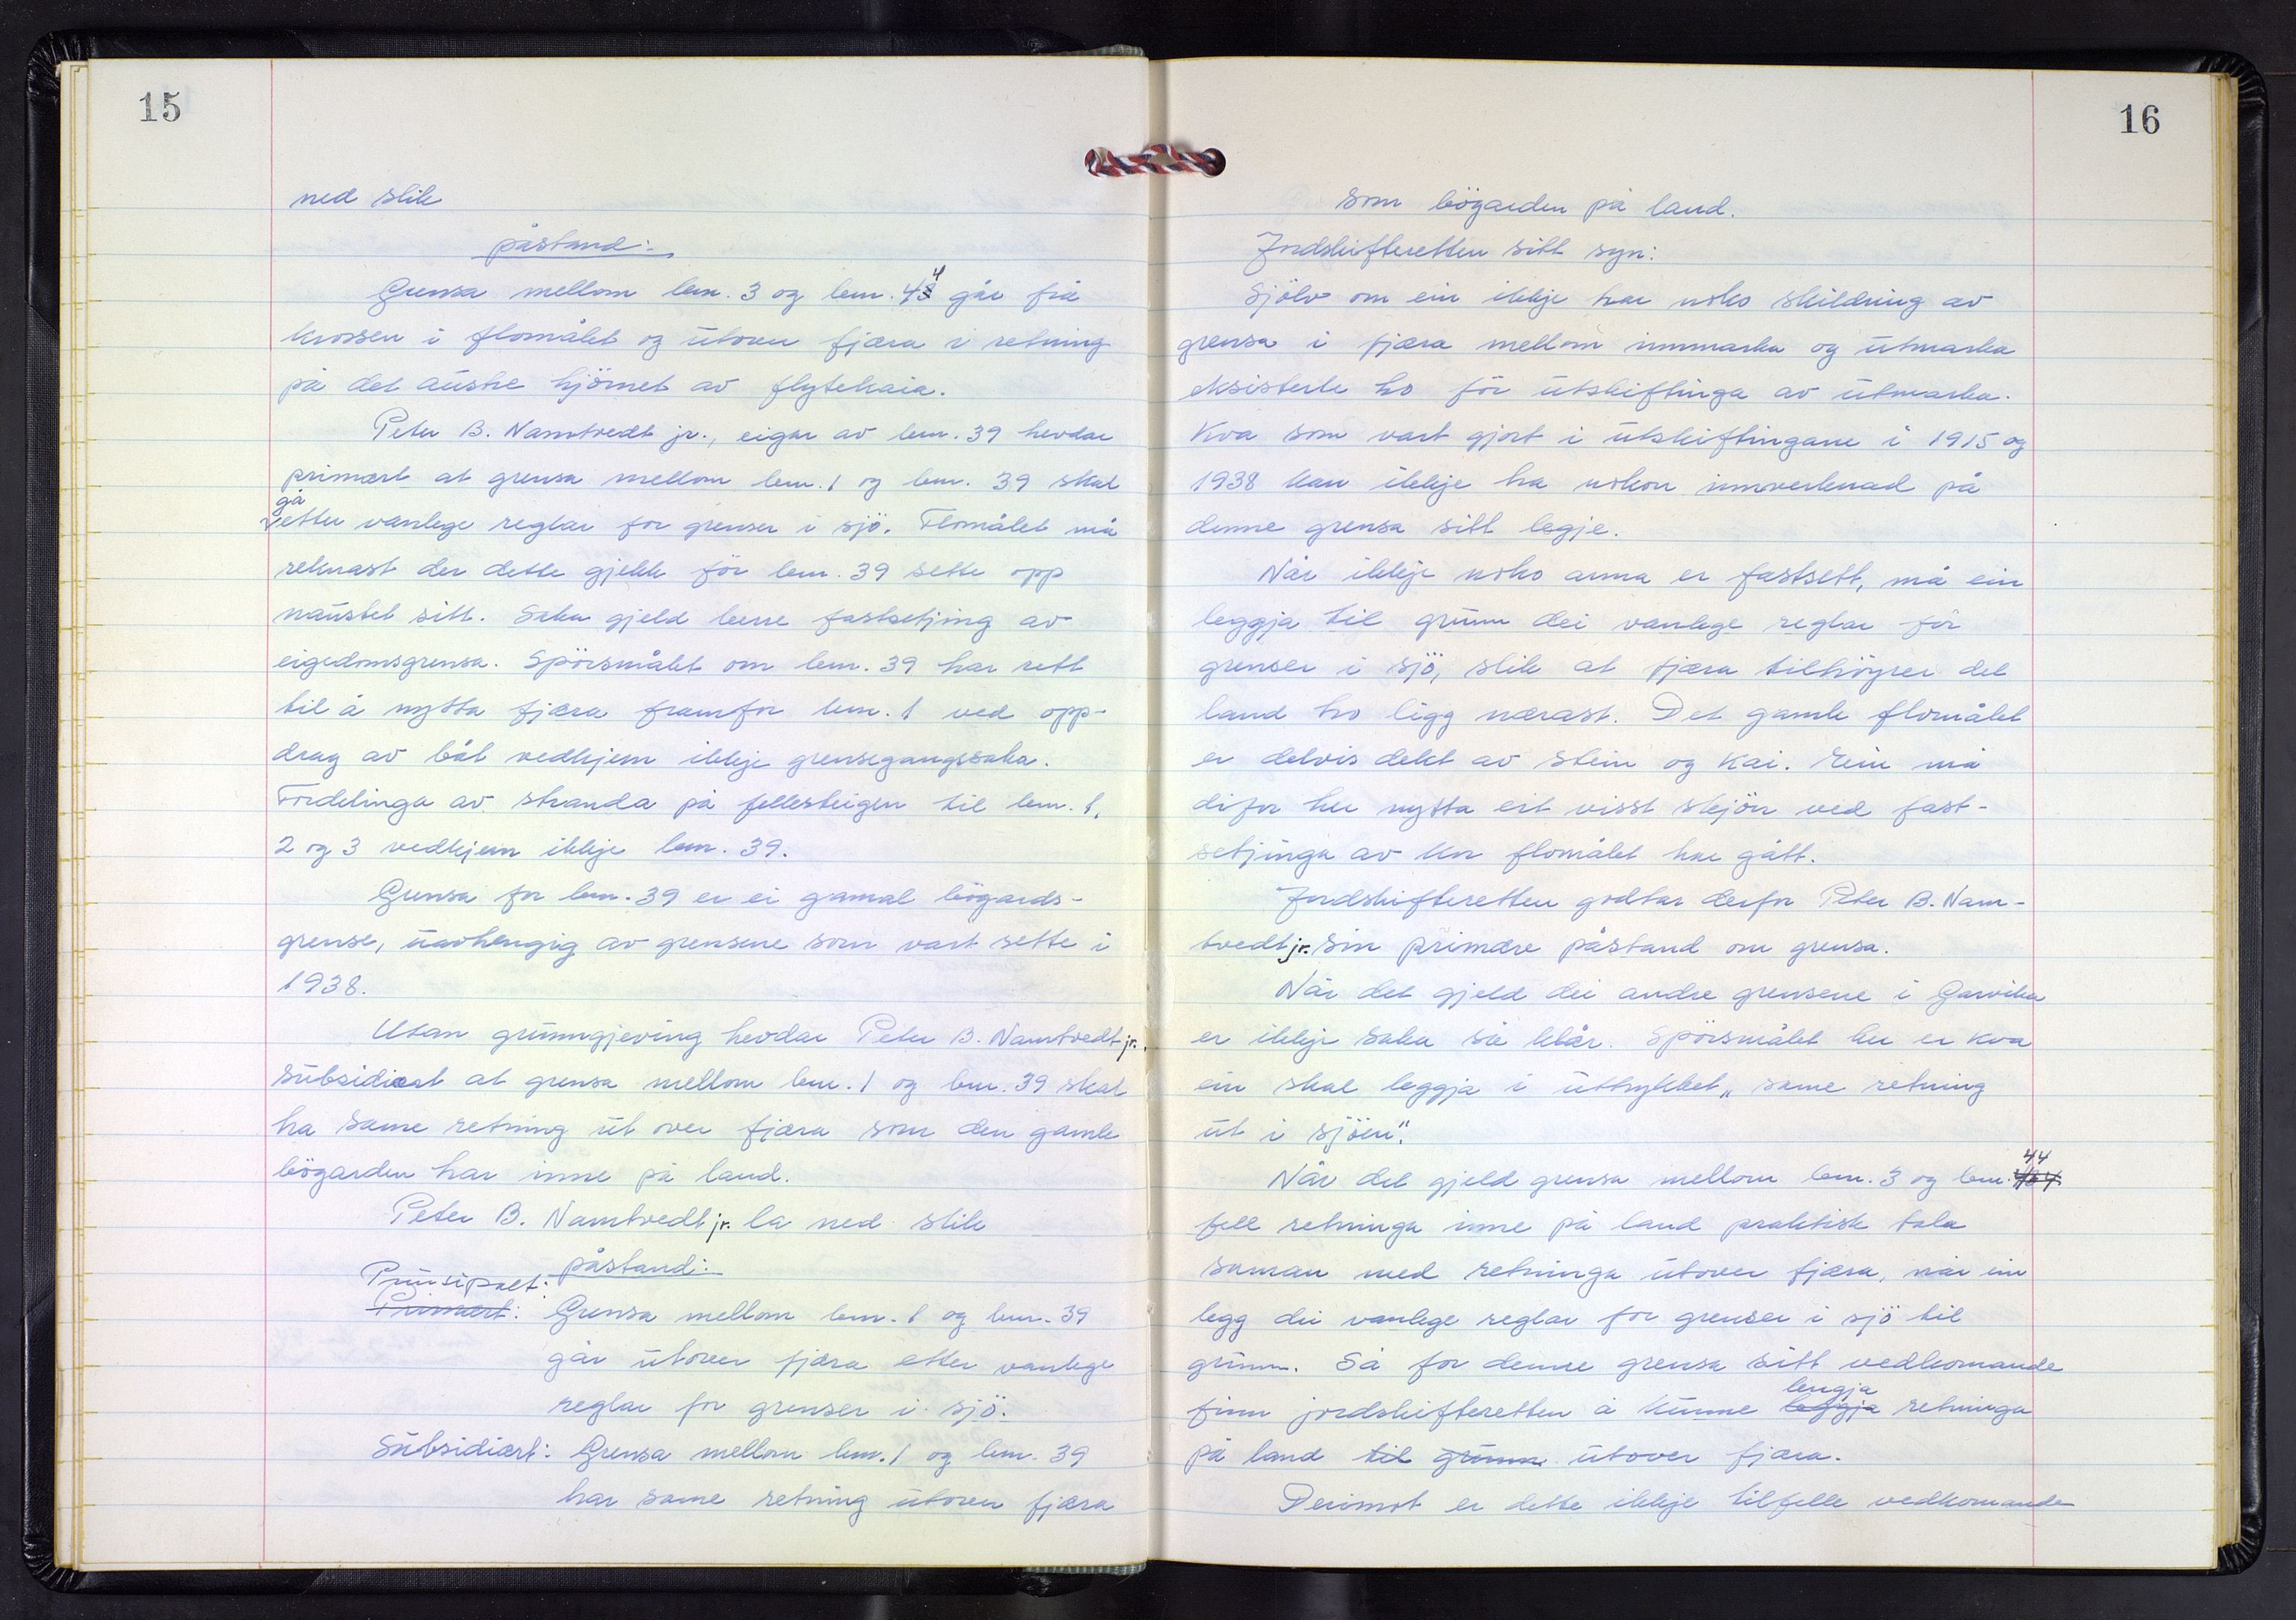 15
ned slik
påstand:
Grensa mellom bnr. 3 og bnr. 44 går frå
krossen i flomålet og utover fjæra i retning
på det austre hjörnet av flytekaia.
Peter B. Namtvedt jr., eigar av bnr. 39 hevdar
primært at grensa mellom bnr. 1 og bnr. 39 skal
gå
etter vanlege reglar for grenser i sjö. Flomålet må
reknast der dette gjekk för bnr. 39 sette opp
naustet sitt. Saka gjeld berre fastsetjing av
eigedomsgrensa. Spörsmålet om bnr. 39 har rett
til å nytta fjæra framfor bnr. 1 ved opp-
drag av båt vedkjem ikkje grensegangssaka.
Fordelinga av stranda på fellesteigen til bnr. 1,
2 og 3 vedkjem ikkje bnr. 39.
Grensa for bnr. 39 er ei gamal bögards-
grense, uavhengig av grensene som vart sette i
1938.
Utan grunngjeving hevdar Peter B. Namtvedt jr.
subsidiært at grensa mellom bnr. 1 og bnr. 39 skal
ha same retning ut over fjæra som den gamle
bögarden har inne på land.
Peter B. Namtvedt jr. la ned slik
påstand:
Prinsipalt:
Primært: Grensa mellom bnr. 1 og bnr. 39
går utover fjæra etter vanlege
reglar for grenser i sjö.
Subsidiært: Grensa mellom bnr. 1 og bnr. 39
har same retning utover fjæra
16
som bögarden på land.
Jordskifteretten sitt syn:
Sjölv om ein ikkje har noko skildring av
grensa i fjæra mellom innmarka og utmarka
eksisterte ho för utskiftinga av utmarka.
Kva som vart gjort i utskiftingane i 1915 og
1938 kan ikkje ha nokon innverknad på
denne grensa sitt legje.
Når ikkje noko anna er fastsett, må ein
leggja til grunn dei vanlege reglar for
grenser i sjö, slik at fjæra tilhöyrer det
land ho ligg nærast. Det gamle flomålet
er delvis dekt av stein og kai. Ein må
difor her nytta eit visst skjön ved fast-
setjinga av kor flomålet har gått.
Jordskifteretten godtar derfor Peter B. Nam-
tvedt jr. sin primære påstand om grensa.
Når det gjeld dei andre grensene i Garvika
er ikkje saka så klår. Spörsmålet her er kva
ein skal leggja i uttrykket „same retning
ut i sjöen".
44
Når det gjeld grensa mellom bnr. 3 og bnr.
fell retninga inne på land praktisk tala
saman med retninga utover fjæra, når ein
legg dei vanlege reglar for grenser i sjö til
grunn. Så for denne grensa sitt vedkomande
lengja
finn jordskifteretten å kunne leggja retninga
på land til grunn utover fjæra.
Derimot er dette ikkje tilfelle vedkomande